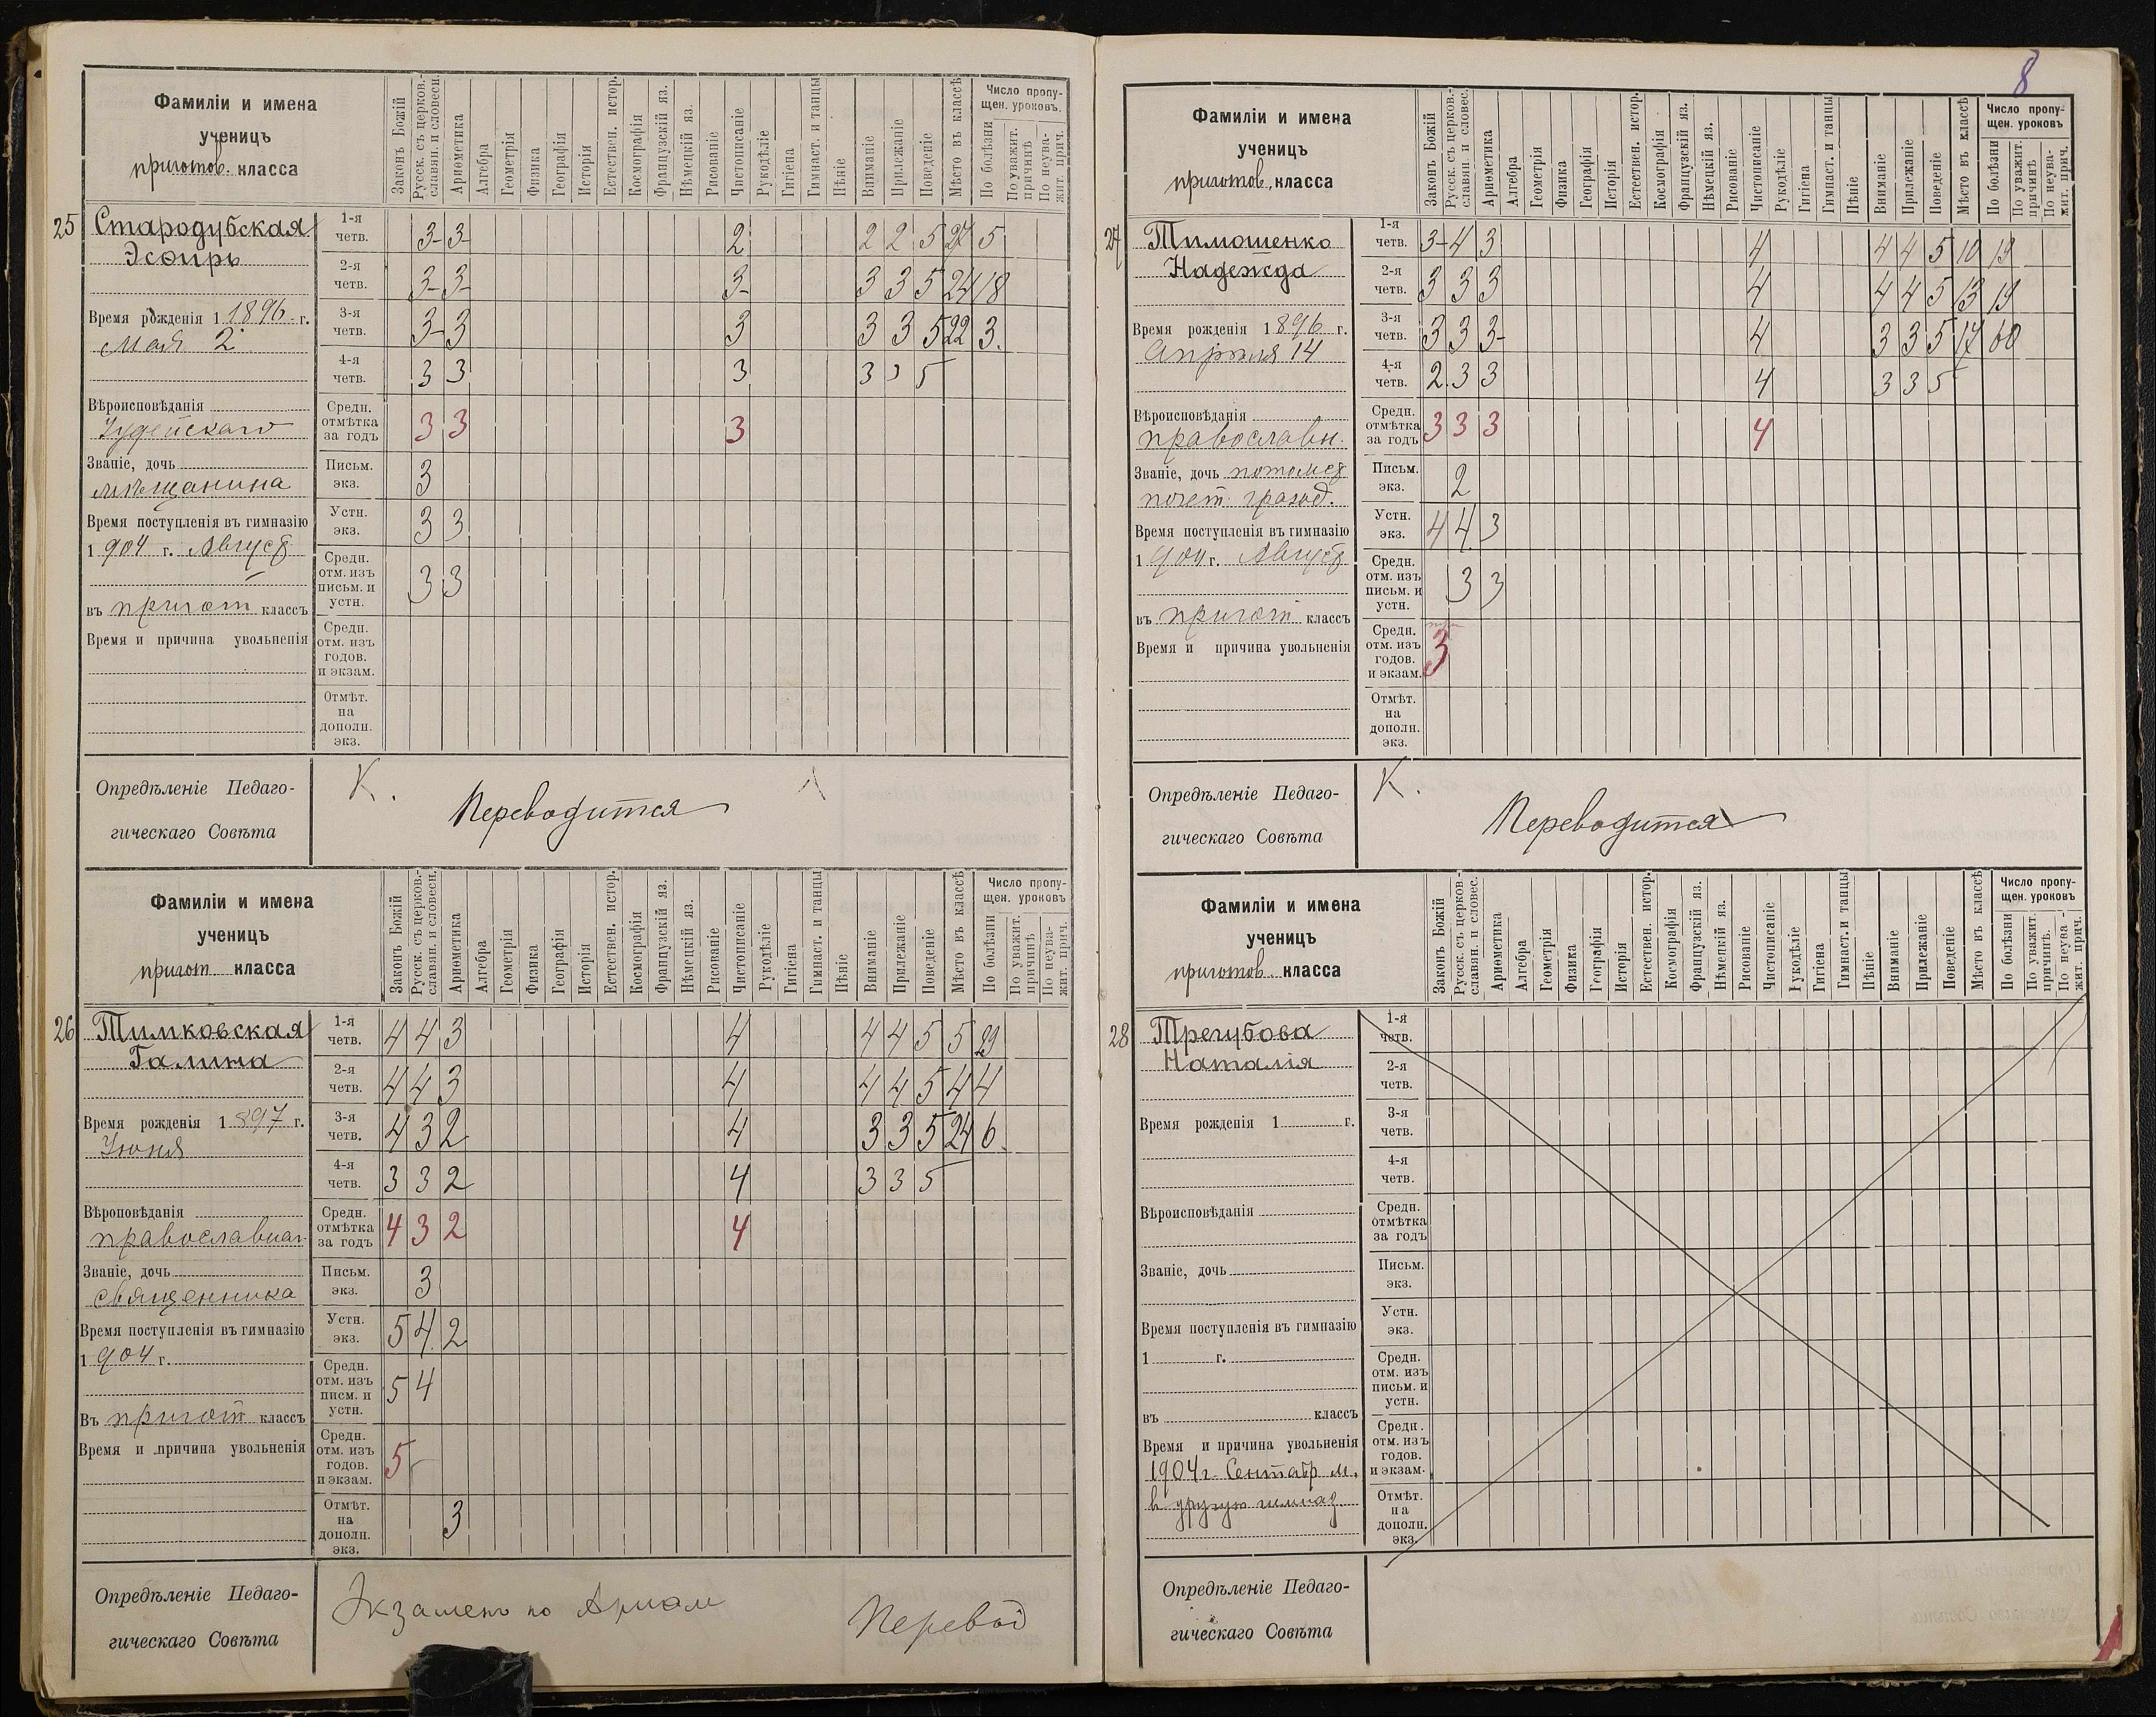 8
Фамиліи и имена
ученицъ
приготов. класса
Законъ Божій
Русск. съ церков.-
славян. и словесн.
Ариѳметика
Алгебра
Геометрія
Физика
Географія
Исторія
Естествен. истор.
Космографія
Французскій яз.
Нѣмецкій яз.
Рисованіе
Чистописаніе
Рукодѣліе
Гигіена
Гимнаст. и танцы
Пѣніе
Вниманіе
Прилежаніе
Поведеніе
Мѣсто въ классѣ
Число пропу-
щен. уроковъ.
По болѣзни
По уважит.
причинѣ
По неува-
жит. прич.
25 Стародубская
Эсѳирь
Время рожденія 1 1896 г.
Мая 2
Вѣроисповѣданія
Іудейскаго
Званіе, дочь
мѣщанина
Время поступленія въ гимназію
1 904 г. Август
въ пригот классъ
Время и причина увольненія
1-я четв. 3- 3- 2 2 2 5 27 5
2-я четв. 3- 3- 3- 3 3 5 24 18
3-я четв. 3- 3 3 3 3 5 22 3.
4-я четв. 3 3 3 3 5
Средн. отмѣтка за годъ 3 3 3
Письм. экз. 3
Устн. экз. 3 3
Средн. отм. изъ письм. и устн. 3 3
Средн. отм. изъ годов. и экзам.
Отмѣт. на дополн. экз.
Опредѣленіе Педаго-
гическаго Совѣта
К.
Переводится
Фамиліи и имена
ученицъ
пригот класса
Законъ Божій
Русск. съ церков.-
славян. и словесн.
Ариѳметика
Алгебра
Геометрія
Физика
Географія
Исторія
Естествен. истор.
Космографія
Французскій яз.
Нѣмецкій яз.
Рисованіе
Чистописаніе
Рукодѣліе
Гигіена
Гимнаст. и танцы
Пѣніе
Вниманіе
Прилежаніе
Поведеніе
Мѣсто въ классѣ
Число пропу-
щен. уроковъ
По болѣзни
По уважит.
причинѣ
По неува-
жит. прич.
26 Тимковская
Галина
Время рожденія 1 897 г.
Іюня
Вѣроповѣданія
православнаг.
Званіе, дочь
священника
Время поступленія въ гимназію
1 904 г.
Въ пригот классъ
Время и причина увольненія
1-я четв. 4 4 3 4 4 4 5 5 29
2-я четв. 4 4 3 4 4 4 5 4 4
3-я четв. 4 3 2 4 3 3 5 24 6.
4-я четв. 3 3 2 4 3 3 5
Средн. отмѣтка за годъ 4 3 2 4
Письм. экз. 3
Устн. экз. 5 4. 2
Средн. отм. изъ писм. и устн. 5 4
Средн. отм. изъ годов. и экзам. 5
Отмѣт. на дополн. экз. 3
Опредѣленіе Педаго-
гическаго Совѣта
Экзаменъ по
Перевод
Фамиліи и имена
ученицъ
приготов. класса
Законъ Божій
Русск. съ церков.-
славян. и словес.
Ариѳметика
Алгебра
Геометрія
Физика
Географія
Исторія
Естествен. истор.
Космографія
Французскій яз.
Нѣмецкій яз.
Рисованіе
Чистописаніе
Рукодѣліе
Гигіена
Гимнаст. и танцы
Пѣніе
Вниманіе
Прилежаніе
Поведеніе
Мѣсто въ классѣ
Число пропу-
щен. уроковъ
По болѣзни
По уважит.
причинѣ
По неува-
жит. прич.
27 Тимошенко
Надежда
Время рожденія 1 896 г.
Апрѣля 14
Вѣроисповѣданія
православн.
Званіе, дочь потомст
почет. гражд.
Время поступленія въ гимназію
1 904 г. Август
въ пригот классъ
Время и причина увольненія
1-я четв. 3- 4 3 4 4 4 5 10 19
2-я четв. 3 3 3 4 4 4 5 13 19
3-я четв. 3 3 3- 4 3 3 5 17 60
4-я четв. 2. 3 3 4 3 3 5
Средн. отмѣтка за годъ 3 3 3 4
Письм. экз. 2
Устн. экз. 4 4. 3
Средн. отм. изъ письм. и устн. 3 3
Средн. отм. изъ годов. и экзам. 3
Отмѣт. на дополн. экз.
Опредѣленіе Педаго-
гическаго Совѣта
К.
Переводится
Фамиліи и имена
ученицъ
приготов. класса
Законъ Божій
Русск. съ церков.-
славян. и словес.
Ариѳметика
Алгебра
Геометрія
Физика
Географія
Исторія
Естествен. истор.
Космографія
Французскій яз.
Нѣмецкій яз.
Рисованіе
Чистописаніе
Рукодѣліе
Гигіена
Гимнаст. и танцы
Пѣніе
Вниманіе
Прилежаніе
Поведеніе
Мѣсто въ классѣ
Число пропу-
щен. уроковъ
По болѣзни
По уважит.
причинѣ.
По неува-
жит. прич.
28 Трегубова
Наталія
Время рожденія 1 г.
Вѣроисповѣданія
Званіе, дочь
Время поступленія въ гимназію
1 г.
въ классъ
Время и причина увольненія
1904 г. Сентябр м.
в другую гимназ
1-я четв.
2-я четв.
3-я четв.
4-я четв.
Средн. отмѣтка за годъ
Письм. экз.
Устн. экз.
Средн. отм. изъ письм. и устн.
Средн. отм. изъ годов. и экзам.
Отмѣт. на дополн. экз.
Опредѣленіе Педаго-
гическаго Совѣта